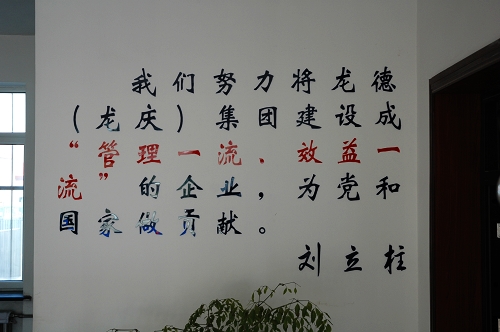 我们努力将龙德
（龙庆）集团建设成
“管理一流、效益一
流”的企业，为党和
国家做贡献。
刘立柱